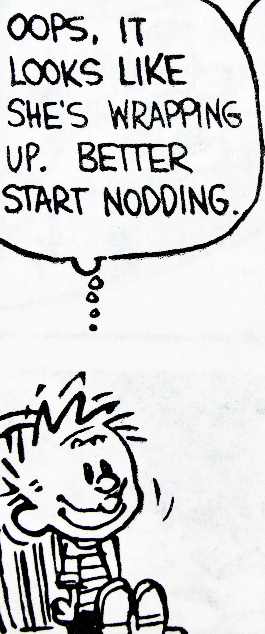 OOPS, IT
LOOKS LIKE
SHE'S WRAPPING
UP. BETTER
START NODDING.